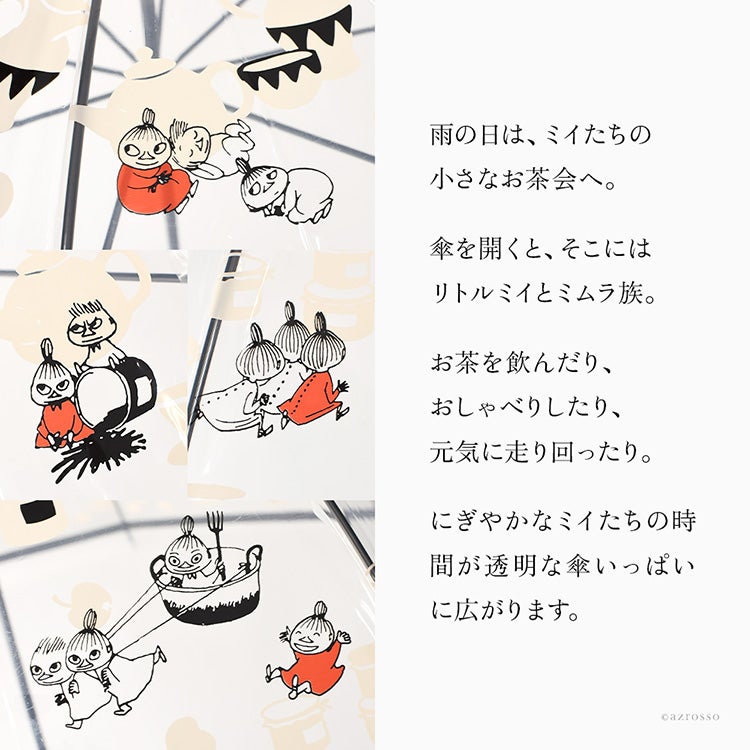 雨の日は、ミイたちの
小さなお茶会へ。
傘を開くと、そこには
リトルミイとミムラ族。
お茶を飲んだり、
おしゃべりしたり、
元気に走り回ったり。
にぎやかなミイたちの時
間が透明な傘いっぱい
に広がります。
©azrosso